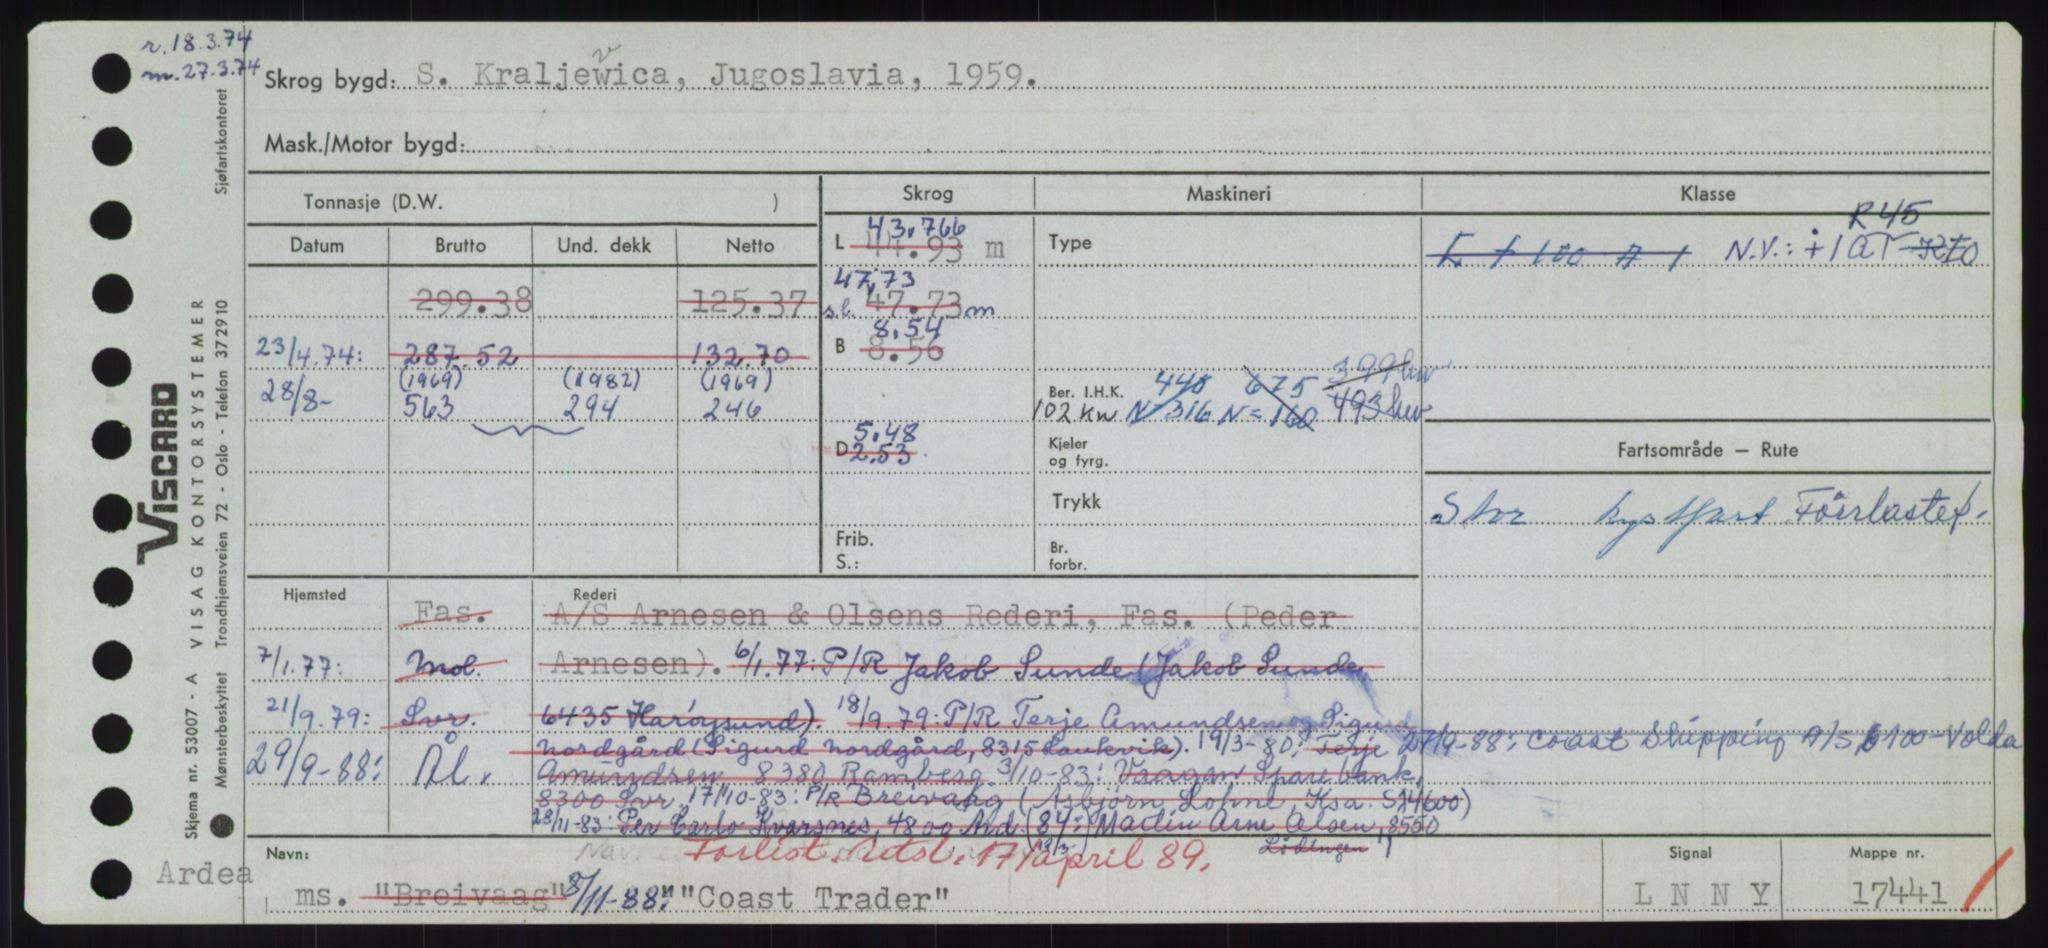 r. 18.3.74
m. 27.3.74
Skrog bygd: S. Kraljewica, Jugoslavia, 1959.
v
Mask./Motor bygd:
Sjøfartskontoret
VISCARD
VISAG KONTORSYSTEMER
Trondhjemsveien 72 - Oslo - Telefon 372910
Skjema nr. 53007 - A
Mønsterbeskyttet
Tonnasje (D.W. )
Datum Brutto Und. dekk Netto
299.38 125.37
23/4.74: 287.52 132.70
(1969) (1982) (1969)
28/8- 563 294 246
Skrog
43.766
L 44.93 m
47,73
s.l. 47.73 m
8.54
B 8.56
5.48
D 2.53
Frib.
S.:
Maskineri
Type
Ber. I.H.K. 440 675 399 kw
102 kw N=316 N=160 493 kw
Kjeler
og fyrg.
Trykk
Br.
forbr.
Klasse
R45
N.V.: +1AT
Fartsområde – Rute
Stor kystfart
Hjemsted Rederi
Fas. A/S Arnesen & Olsens Rederi, Fas. (Peder
7/1.77: Mol. Arnesen). 6/1.77: P/R Jakob Sunde (Jakob Sunde
21/9.79: Svr. 6435 Harøysund). 18/9.79: P/R Terje Amundsen og Sigurd
Nordgård (Sigurd Nordgård, 8315 Laukvik). 19/3-80: Terje 27/9-88: Coast Shipping A/S 6100-Volda
29/9-88: Ål. Amundsen 8380 Ramberg 3/10-83: Vaagan Sparebank,
8300 Svr. 17/10-83: P/R Breivaag (Asbjørn Lohne, Ksa. 4600)
28/11-83: Per Carlo Kvarsnes, 4800 Ard. (84:) Martin Arne Olsen, 8550
Lødingen
Navn: Forlist. 17/april 89.
Ardea
ms. "Breivaag" 8/11-88: "Coast Trader"
Signal
LNNY
Mappe nr.
17441